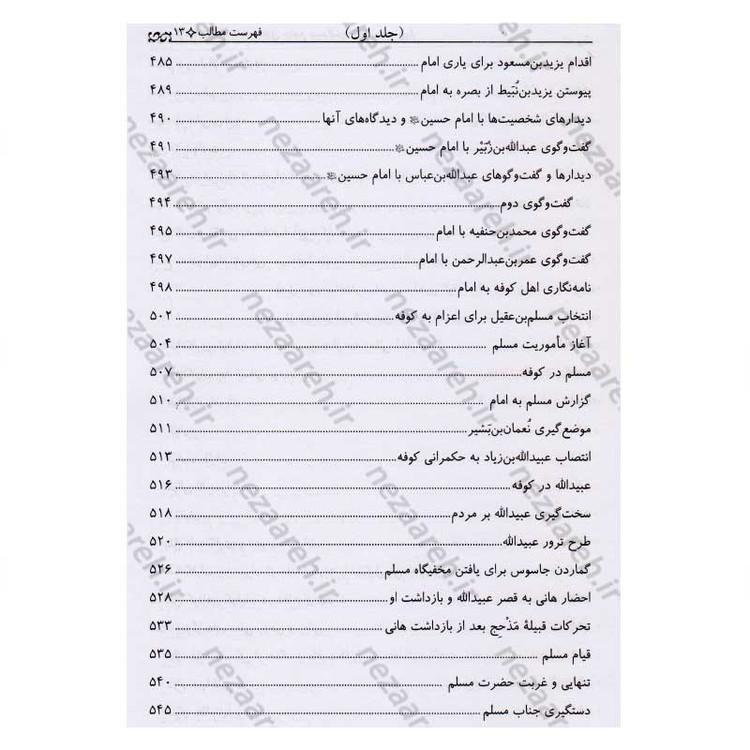 (جلد اول) فهرست مطالب ❖ ۱۳
اقدام یزیدبن‌مسعود برای یاری امام ........ ۴۸۵
پیوستن یزیدبن‌نُبَیط از بصره به امام ........ ۴۸۹
دیدارهای شخصیت‌ها با امام حسین و دیدگاه‌های آنها ........ ۴۹۰
گفت‌وگوی عبدالله‌بن‌زُبَیْر با امام حسین ........ ۴۹۱
دیدارها و گفت‌وگوهای عبدالله‌بن‌عباس با امام حسین ........ ۴۹۳
گفت‌وگوی دوم ........ ۴۹۴
گفت‌وگوی محمدبن‌حنفیه با امام ........ ۴۹۵
گفت‌وگوی عمربن‌عبدالرحمن با امام ........ ۴۹۷
نامه‌نگاری اهل کوفه به امام ........ ۴۹۸
انتخاب مسلم‌بن‌عقیل برای اعزام به کوفه ........ ۵۰۲
آغاز مأموریت مسلم ........ ۵۰۴
مسلم در کوفه ........ ۵۰۷
گزارش مسلم به امام ........ ۵۱۰
موضع‌گیری نُعمان‌بن‌بَشیر ........ ۵۱۱
انتصاب عبیدالله‌بن‌زیاد به حکمرانی کوفه ........ ۵۱۳
عبیدالله در کوفه ........ ۵۱۶
سخت‌گیری عبیدالله بر مردم ........ ۵۱۸
طرح ترور عبیدالله ........ ۵۲۰
گماردن جاسوس برای یافتن مخفیگاه مسلم ........ ۵۲۶
احضار هانی به قصر عبیدالله و بازداشت او ........ ۵۲۸
تحرکات قبیلهٔ مَذْحِج بعد از بازداشت هانی ........ ۵۳۳
قیام مسلم ........ ۵۳۵
تنهایی و غربت حضرت مسلم ........ ۵۴۰
دستگیری جناب مسلم ........ ۵۴۵
nezaareh.ir